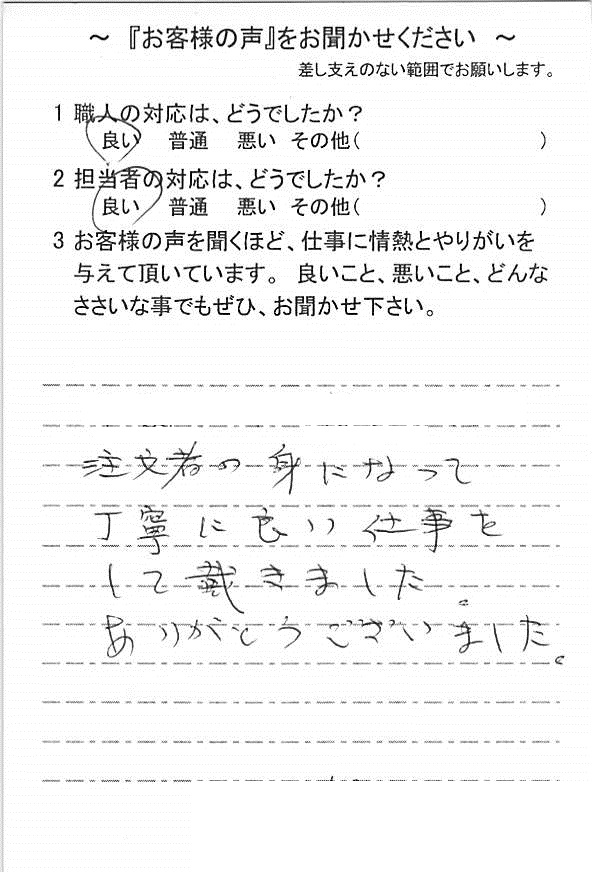 ～ 『お客様の声』をお聞かせください ～
差し支えのない範囲でお願いします。
1 職人の対応は、どうでしたか？
良い 普通 悪い その他( )
2 担当者の対応は、どうでしたか？
良い 普通 悪い その他( )
3 お客様の声を聞くほど、仕事に情熱とやりがいを
与えて頂いています。 良いこと、悪いこと、どんな
ささいな事でもぜひ、お聞かせ下さい。
注文者の身になって
丁寧に良い仕事を
して戴きました。
ありがとうございました。